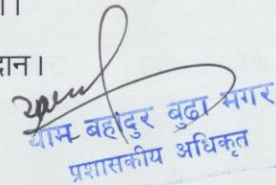 ।
दान ।
याम बहादुर बुढा मगर
प्रशासकीय अधिकृत